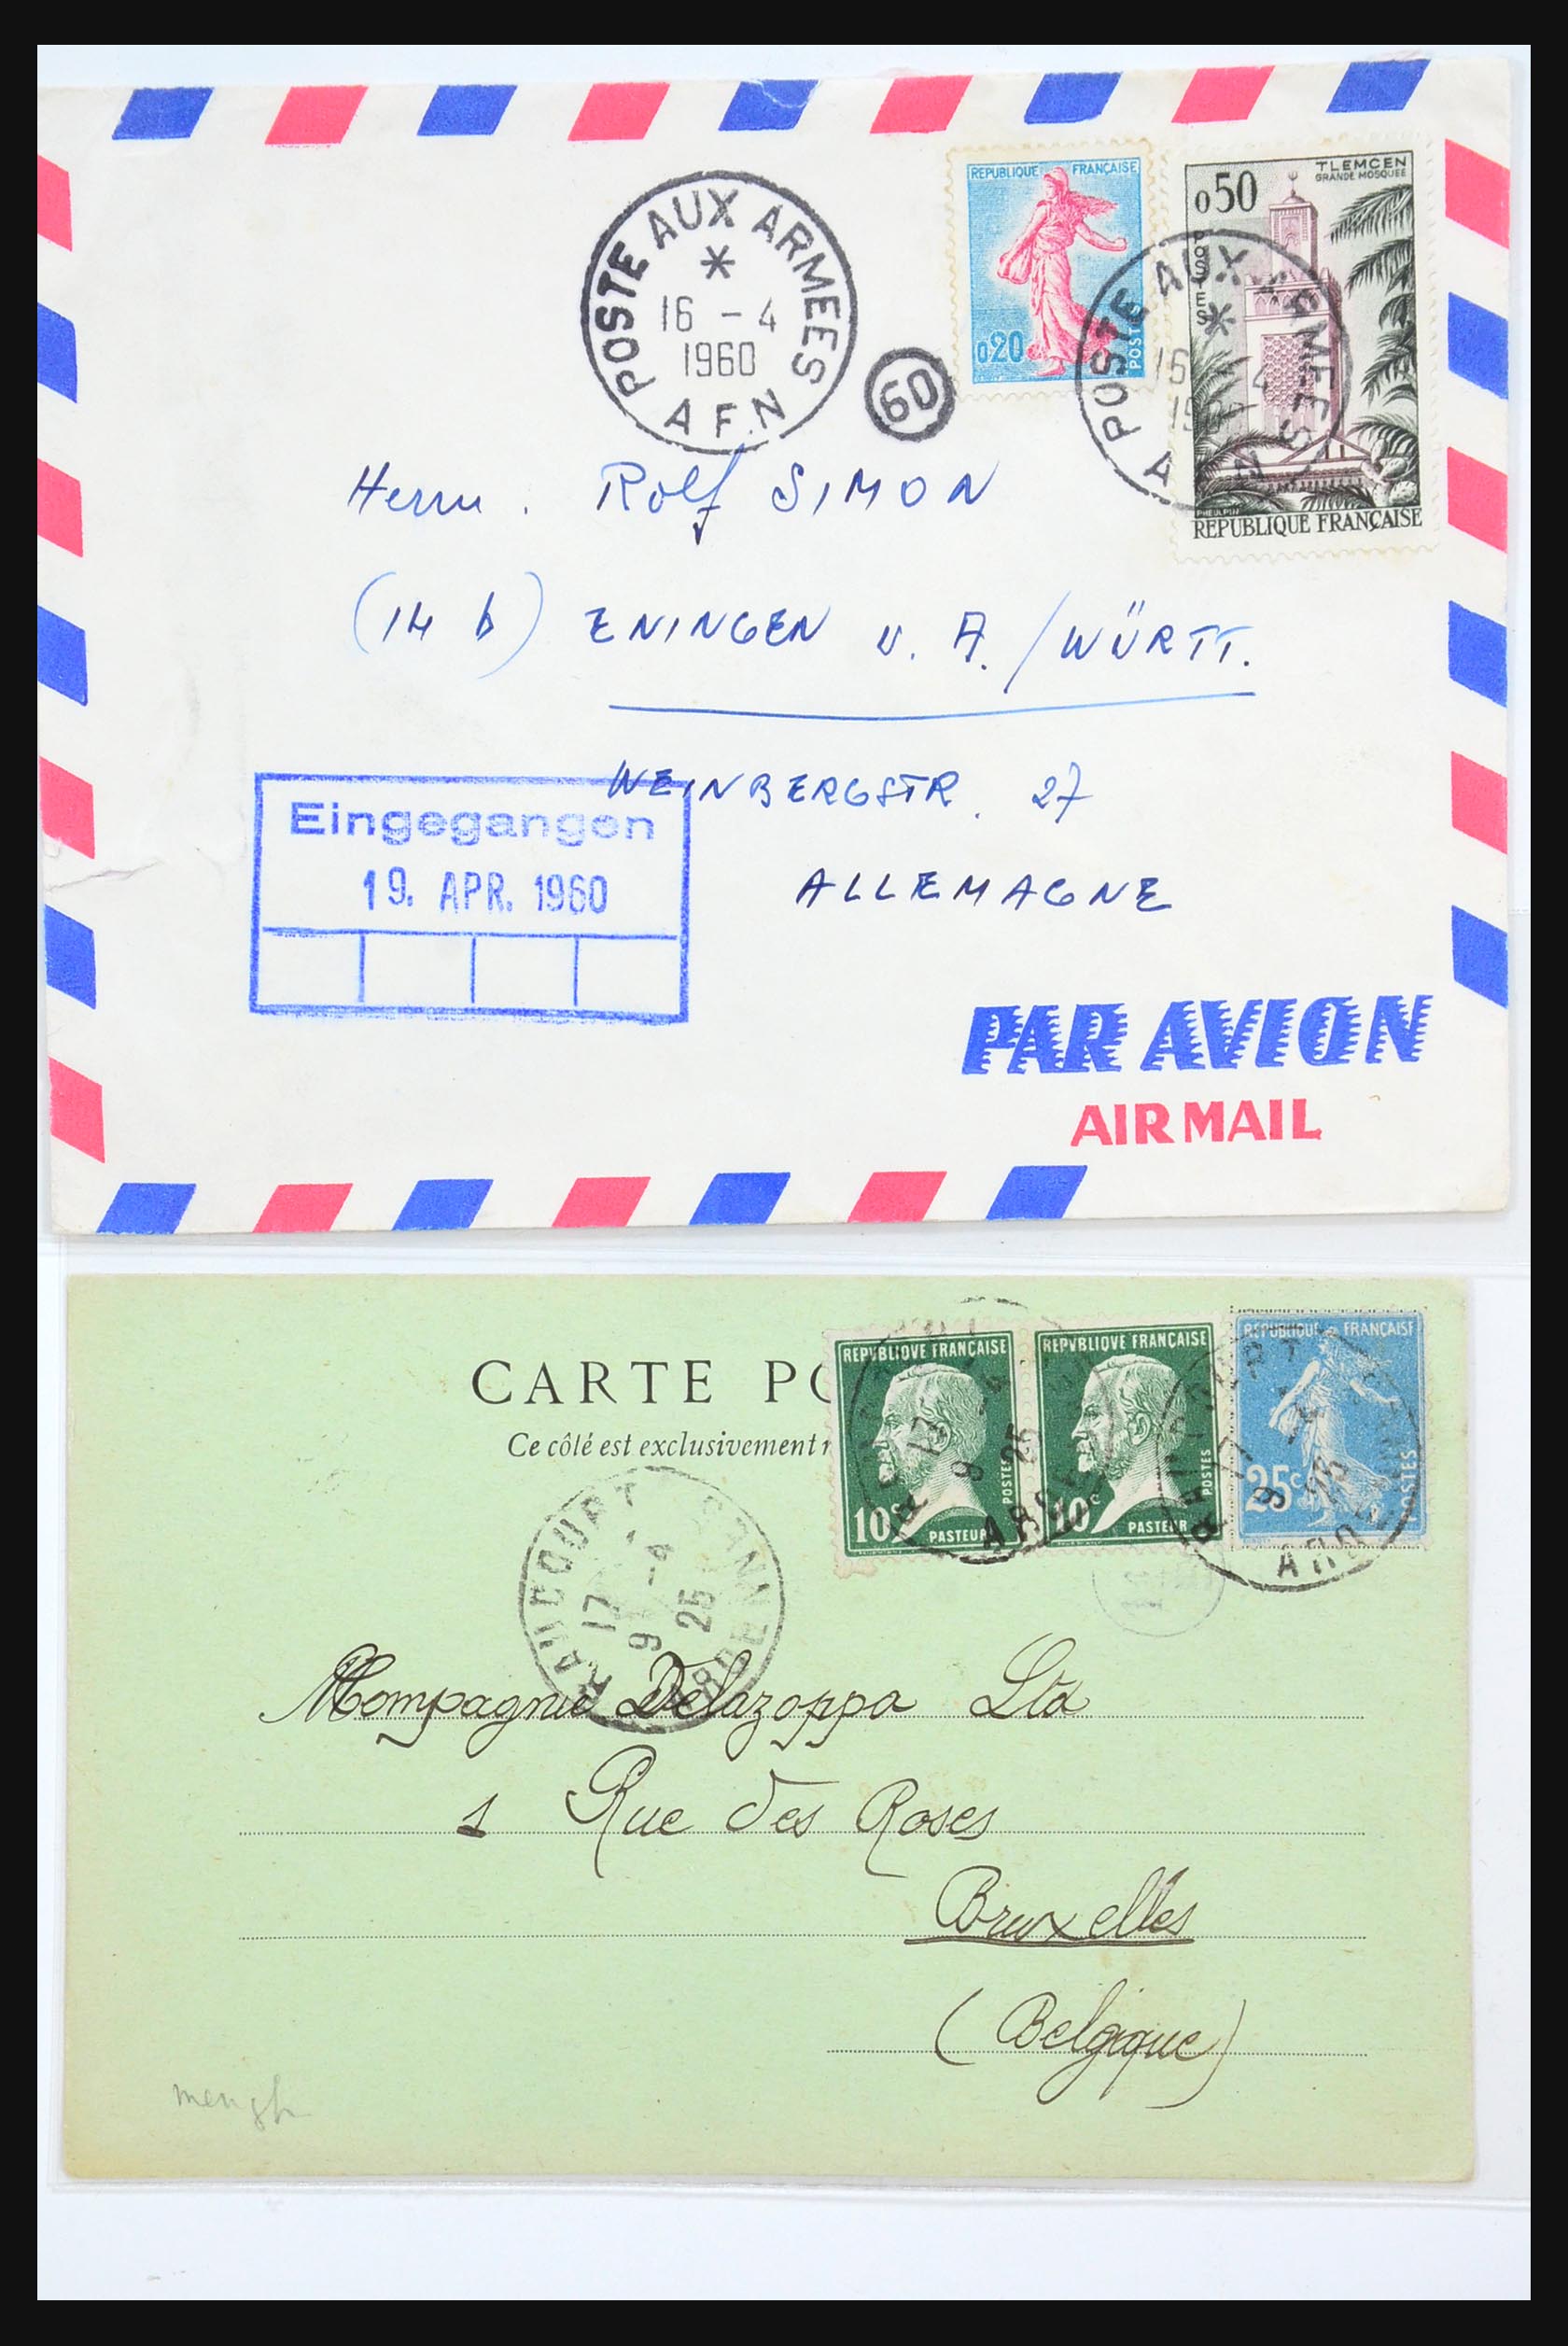 REPUBLIQUE FRANÇAISE
0,20
POSTES
TLEMCEN
GRANDE MOSQUÉE
0,50
POSTES
PHEULPIN
REPUBLIQUE FRANÇAISE
POSTE AUX ARMEES
*
16 - 4
1960
A.F.N
60
POSTE AUX ARMEES
*
16 - 4
1960
Herrn. Rolf SIMON
(14 b) ENINGEN u. A. / WÜRTT.
WEINBERGSTR. 27
ALLEMAGNE
Eingegangen
19. APR. 1960
PAR AVION
AIR MAIL
CARTE PO
Ce côté est exclusivement r
REPVBLIQVE FRANÇAISE
10c
POSTES
PASTEUR
REPVBLIQVE FRANÇAISE
10c
POSTES
PASTEUR
REPUBLIQUE FRANÇAISE
25c
POSTES
RAUCOURT
17 - 4
9 25
ARDE
Compagnie Delazoppa Ltd
1 Rue des Roses
Bruxelles
(Belgique)